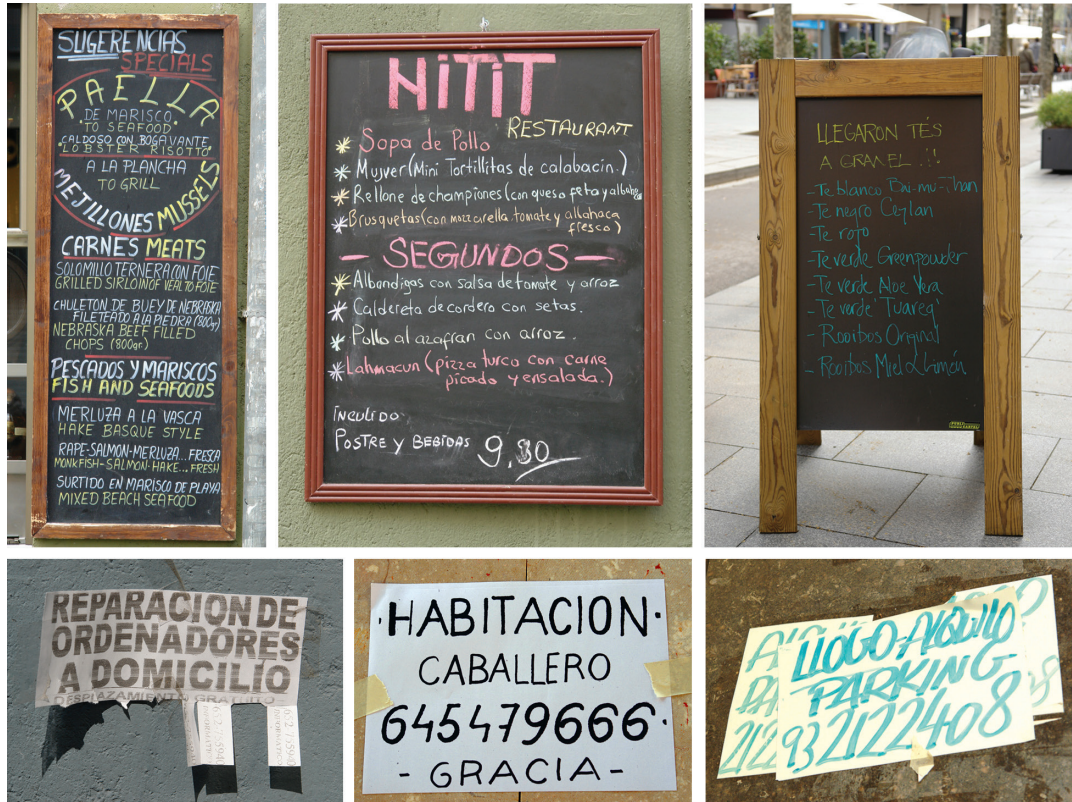 SUGERENCIAS
SPECIALS
PAELLA
DE MARISCO
"TO SEAFOOD"
CALDOSO CON BOGAVANTE
"LOBSTER RISOTTO"
A LA PLANCHA
TO GRILL
MEJILLONES MUSSELS
CARNES MEATS
SOLOMILLO TERNERA CON FOIE
GRILLED SIRLOIN OF VEAL TO FOIE
CHULETON DE BUEY DE NEBRASKA
FILETEADO A LA PIEDRA (800gr)
NEBRASKA BEEF FILLED
CHOPS (800gr)
PESCADOS Y MARISCOS
FISH AND SEAFOODS
MERLUZA A LA VASCA
HAKE BASQUE STYLE
RAPE-SALMON-MERLUZA...FRESCA
MONKFISH-SALMON-HAKE...FRESH
SURTIDO EN MARISCO DE PLAYA
MIXED BEACH SEAFOOD
NiTiT
RESTAURANT
Sopa de Pollo
Mujver (Mini Tortillitas de calabacin.)
Rellone de championes (con queso feta y
Brusquetas (con mozzarella tomate y allahaca
fresco)
- SEGUNDOS -
Albondigas con salsa de tomate y arroz
Caldereta de cordero con setas.
Pollo al azafran con arroz.
Lahmacun (pizza turco con carne
picado y ensalada.)
iNCULiDO
POSTRE Y BEBiDAS 9,80
LLEGARON TÉS
A GRANEL !!!
- Te blanco Bai-mu-Than
- Te negro Ceylan
- Te rojo
- Te verde Greenpowder
- Te verde Aloe Vera
- Te verde 'Tuareg'
- Rooibos Original
- Rooibos Miel
REPARACION DE
ORDENADORES
A DOMICILIO
DESPLAZAMIENTO GRATUITO
·HABITACION·
CABALLERO
645479666·
- GRACIA -
LLOGO-ALQUILO
PARKING
93 2122408